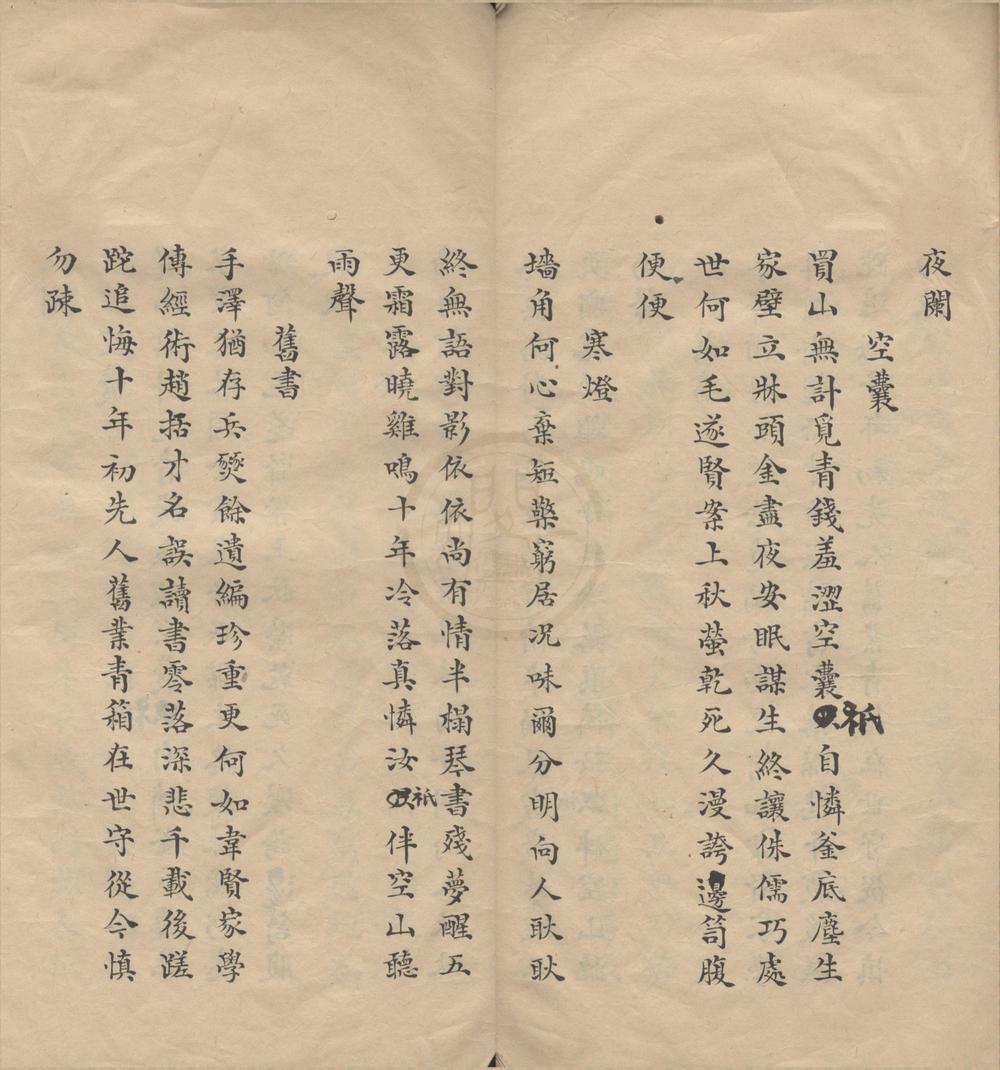 夜闌
空囊
買山無計覓青錢羞澀空囊祇自憐釜底塵生
家壁立牀頭金盡夜安眠謀生終讓侏儒巧處
世何如毛遂賢案上秋螢乾死久漫誇邊笥腹
便便
寒燈
墻角何心棄短檠窮居况味爾分明向人耿耿
終無語對影依依尚有情半榻琴書殘夢醒五
更霜露曉雞鳴十年冷落真憐汝祇伴空山聽
雨聲
舊書
手澤猶存兵燹餘遺編珍重更何如韋賢家學
傳經術趙括才名誤讀書零落深悲千載後蹉
跎追悔十年初先人舊業青箱在世守從今慎
勿疎